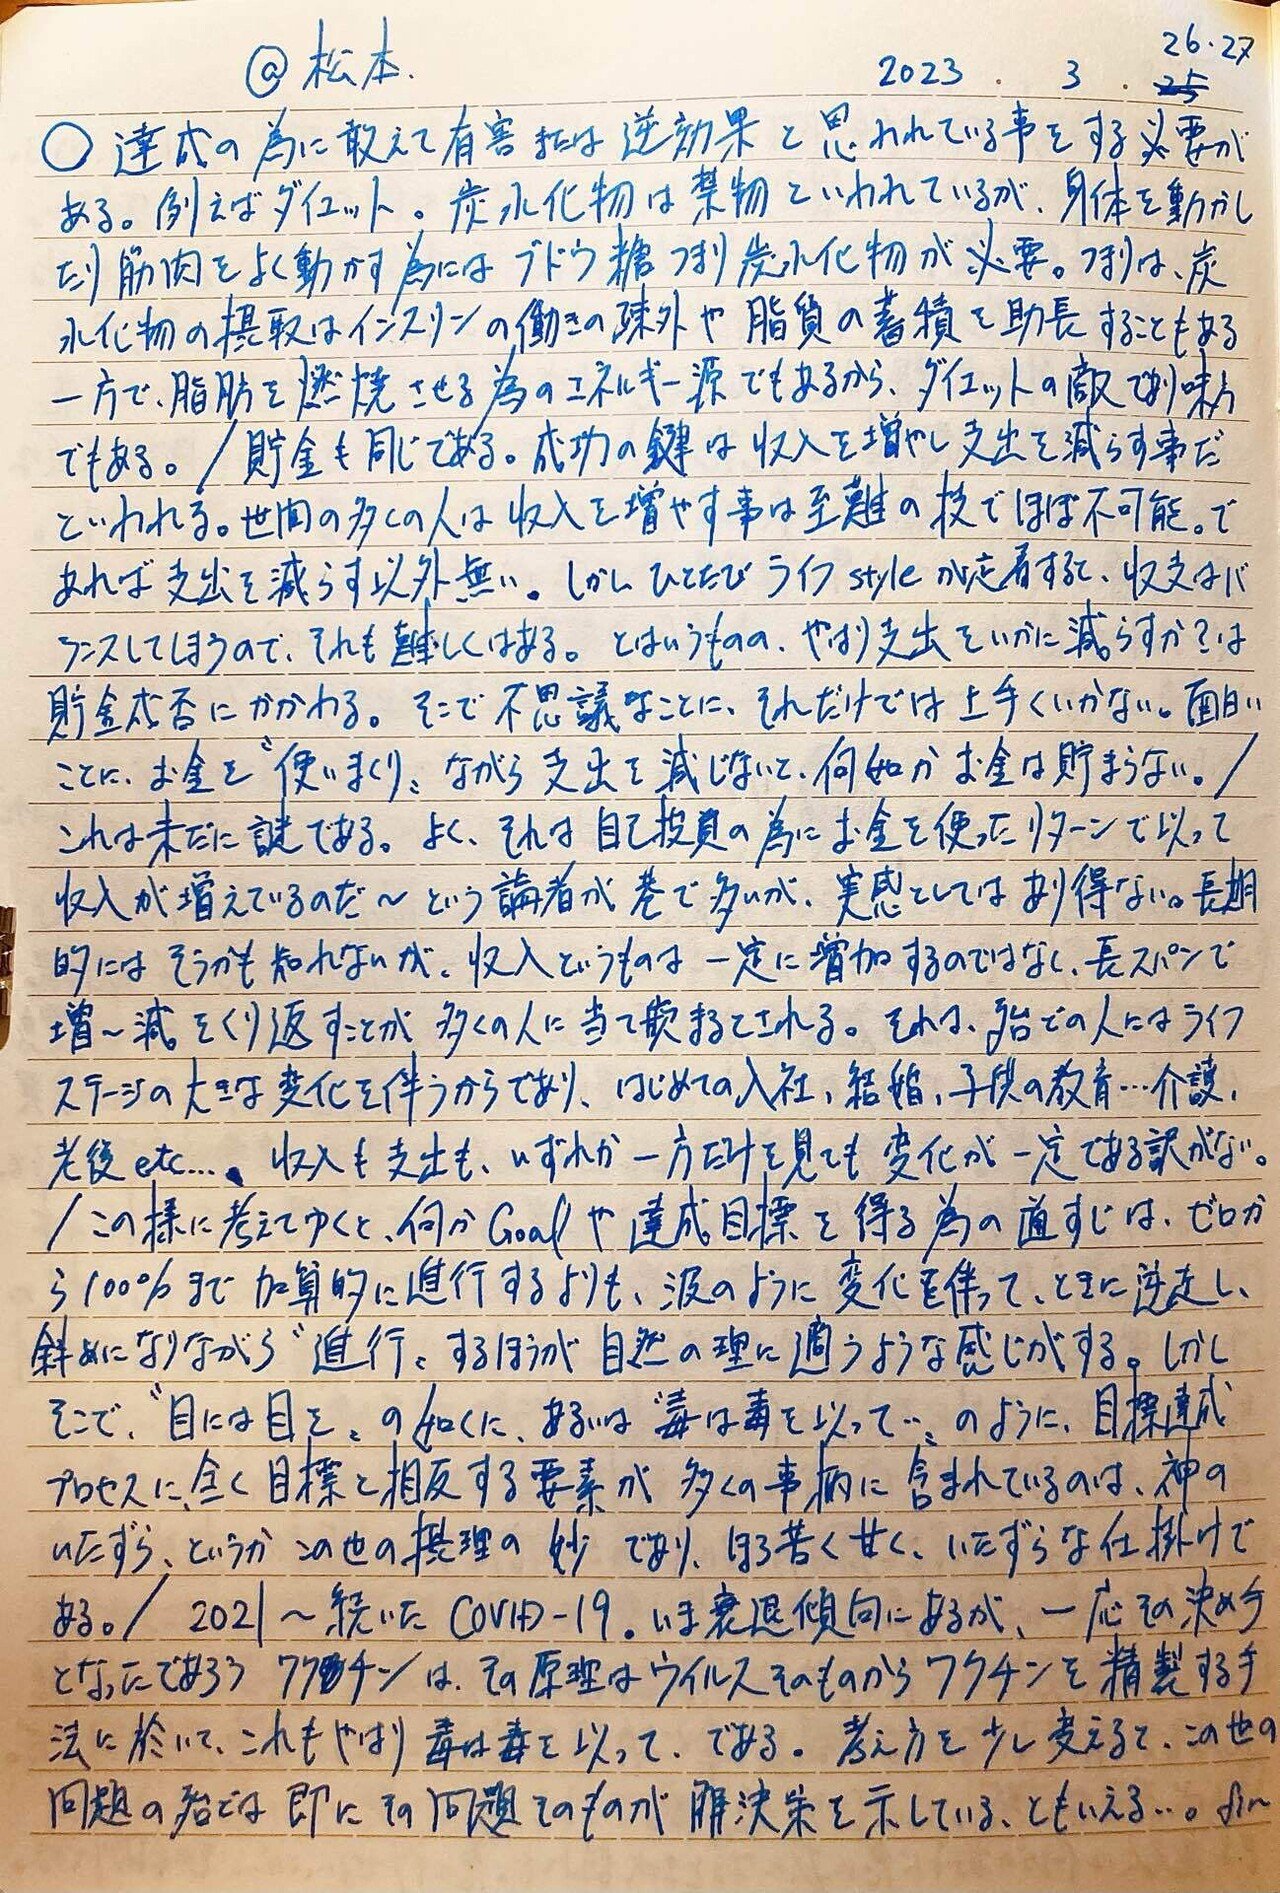 @松本.
26.27
2023. 3. 25
○ 達成の為に敢えて有害または逆効果と思われている事をする必要が
ある。例えばダイエット。炭水化物は禁物といわれているが、身体を動かし
たり筋肉をよく動かす為にはブドウ糖つまり炭水化物が必要。つまりは、炭
水化物の摂取はインスリンの働きの疎外や脂質の蓄積を助長することもある
一方で、脂肪を燃焼させる為のエネルギー源でもあるから、ダイエットの敵であり味方
でもある。/貯金も同じである。成功の鍵は収入を増やし支出を減らす事だ
といわれる。世間の多くの人は収入を増やす事は至難の技でほぼ不可能。で
あれば支出を減らす以外無い。しかしひとたびライフstyleが定着すると、収支はバ
ランスしてしまうので、それも難しくはある。とはいうものの、やはり支出をいかに減らすか?は
貯金成否にかかわる。そこで不思議なことに、それだけでは上手くいかない。面白い
ことに、お金を〝使いまくり〟ながら支出を減じないと、何如かお金は貯まらない。/
これは未だに謎である。よく、それは自己投資の為にお金を使ったリターンで以って
収入が増えているのだ〜という論者が巷で多いが、実感としてはあり得ない。長期
的にはそうかも知れないが、収入というものは一定に増加するのではなく、長スパンで
増〜減をくり返すことが多くの人に当て嵌まるとされる。それは、殆どの人にはライフ
ステージの大きな変化を伴うからであり、はじめての入社、結婚、子供の教育…介護、
老後etc…、収入も支出も、いずれか一方だけを見ても変化が一定である訳がない。
/この様に考えてゆくと、何かGoalや達成目標を得る為の道すじは、ゼロか
ら100%まで加算的に進行するよりも、波のように変化を伴って、ときに逆走し、
斜めになりながら〝進行〟するほうが自然の理に適うような感じがする。しかし
そこで、〝目には目を〟の如くに、あるいは〝毒は毒を以って…〟のように、目標達成
プロセスに、全く目標と相反する要素が多くの事柄に含まれているのは、神の
いたずら、というかこの世の摂理の妙であり、ほろ苦く甘く、いたずらな仕掛けで
ある。/2021〜続いたCOVID-19。いま衰退傾向にあるが、一応その決め手
となったであろうワクチンは、その原理はウイルスそのものからワクチンを精製する手
法に於いて、これもやはり毒は毒を以って、である。考え方を少し変えると、この世の
問題の殆どは即にその問題そのものが解決策を示している、ともいえる…。fin